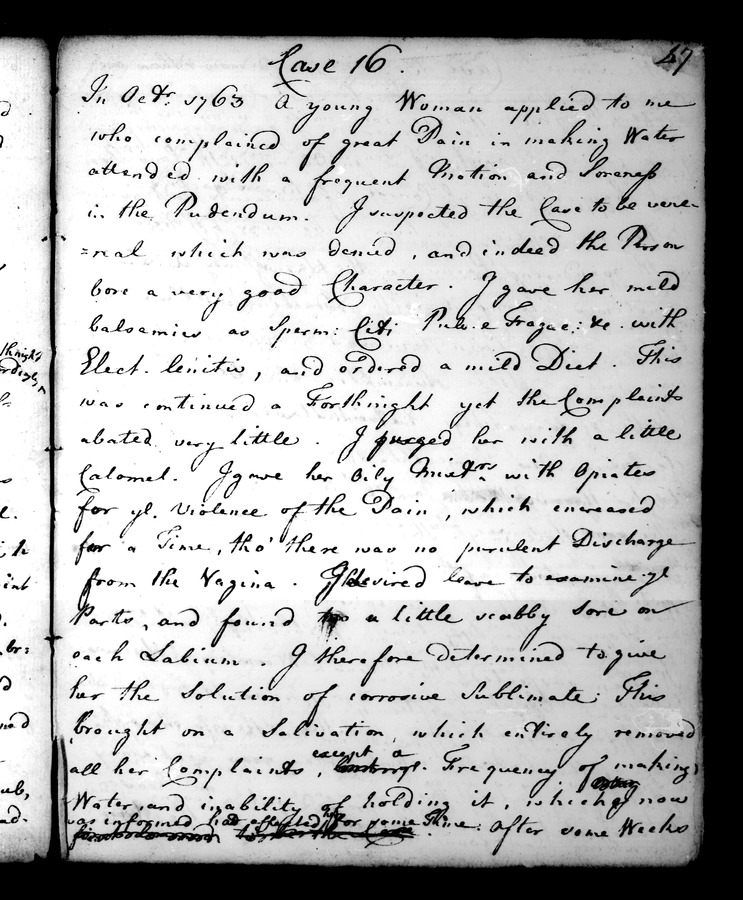 47
Case 16.
In Octr. 1763 A young Woman applied to me
who complained of great Pain in making Water
attended with a frequent Motion and Soreness
in the Pudendum. I suspected the Case to be vene-
=real which was denied, and indeed the Person
bore a very good Character. I gave her mild
balsamics as Sperm: Ceti Pulv. e Tragac: &c. with
Elect. lenitiv, and ordered a mild Diet. This
was continued a Forthnight yet the Complaints
abated very little. I purged her with a little
Calomel. I gave her Oily Mixtrs. with Opiates
for ye. Violence of the Pain, which encreased
for a Time, tho' there was no purulent Discharge
from the Vagina. I desired leave to examine ye
Parts, and found a little scabby Sore on
each Labium. I therefore determined to give
her the Solution of corrosive Sublimate: This
brought on a Salivation, which entirely removed
all her Complaints, except a Frequency of making
Water and inability of holding it, which now
was informed had affected her for some Time: After some Weeks